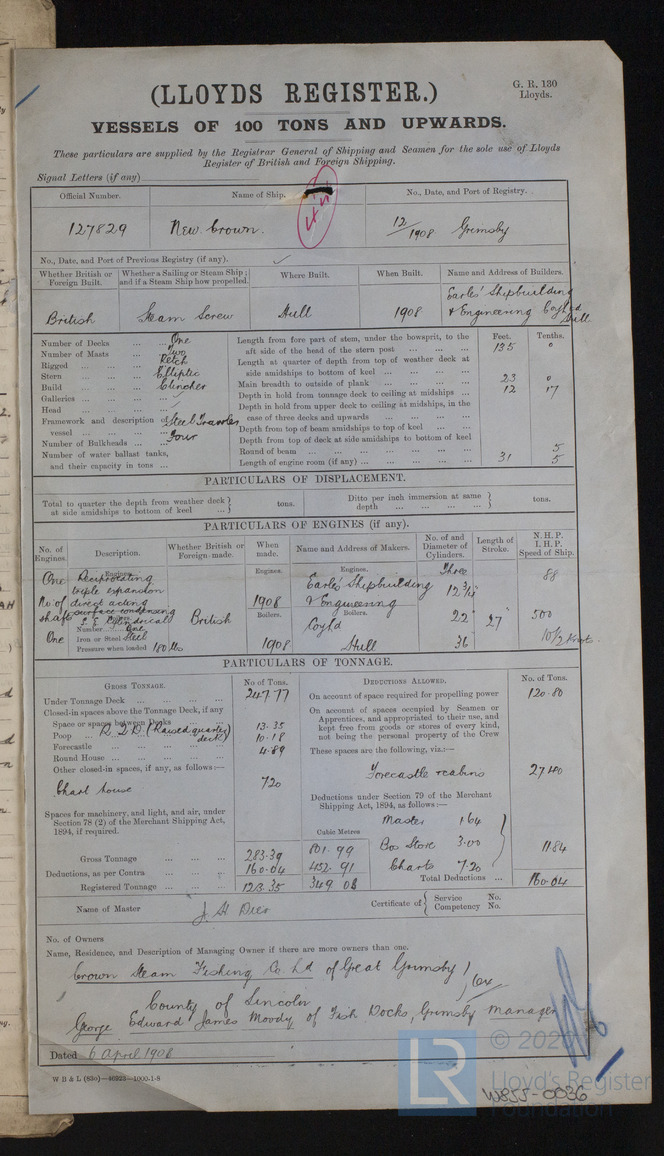 (LLOYDS REGISTER.)
G. R. 130
Lloyds.
VESSELS OF 100 TONS AND UPWARDS.
These particulars are supplied by the Registrar General of Shipping and Seamen for the sole use of Lloyds
Register of British and Foreign Shipping.
Signal Letters (if any)
Official Number. Name of Ship. No., Date, and Port of Registry.
127829 New Crown. 12/1908 Grimsby
No., Date, and Port of Previous Registry (if any).
Whether British or Foreign Built. Whether a Sailing or Steam Ship; and if a Steam Ship how propelled. Where Built. When Built. Name and Address of Builders.
British Steam Screw Hull 1908 Earles' Shipbuilding
& Engineering Coy Ld
Hull
Number of Decks One
Number of Masts Two
Rigged Ketch
Stern Elliptic
Build Clincher
Galleries
Head
Framework and description of vessel Steel Trawler
Number of Bulkheads Four
Number of water ballast tanks,
and their capacity in tons
Feet. Tenths.
Length from fore part of stem, under the bowsprit, to the
aft side of the head of the stern post 135 0
Length at quarter of depth from top of weather deck at
side amidships to bottom of keel
Main breadth to outside of plank 23 0
Depth in hold from tonnage deck to ceiling at midships 12 17
Depth in hold from upper deck to ceiling at midships, in the
case of three decks and upwards
Depth from top of beam amidships to top of keel
Depth from top of deck at side amidships to bottom of keel
Round of beam 5
Length of engine room (if any) 31 5
PARTICULARS OF DISPLACEMENT.
Total to quarter the depth from weather deck
at side amidships to bottom of keel tons.
Ditto per inch immersion at same
depth tons.
PARTICULARS OF ENGINES (if any).
No. of Engines. Description. Whether British or Foreign made. When made. Name and Address of Makers. No. of and Diameter of Cylinders. Length of Stroke. N.H.P. I.H.P. Speed of Ship.
One Engines. Reciprocating
triple expansion
direct acting
surface condensing
No of shafts
One
Boilers.
Number One
Iron or Steel Steel
Pressure when loaded 180 lbs
British
Engines.
1908
Boilers.
1908
Engines.
Earles Shipbuilding
& Engineering
Boilers.
Coy Ld
Hull
Three
12 3/4
22
36
27"
88
500
10 1/2 Knots.
PARTICULARS OF TONNAGE.
GROSS TONNAGE. No of Tons.
Under Tonnage Deck 247.77
Closed-in spaces above the Tonnage Deck, if any
Space or spaces between Decks
R.Q.D. (Raised quarter deck) 13.35
Poop 10.18
Forecastle 4.89
Round House
Other closed-in spaces, if any, as follows:—
Chart house 7.20
Spaces for machinery, and light, and air, under
Section 78 (2) of the Merchant Shipping Act,
1894, if required.
Cubic Metres
Gross Tonnage 283.39 801.99
Deductions, as per Contra 160.04 452.91
Registered Tonnage 123.35 349.08
DEDUCTIONS ALLOWED. No. of Tons.
On account of space required for propelling power 120.80
On account of spaces occupied by Seamen or
Apprentices, and appropriated to their use, and
kept free from goods or stores of every kind,
not being the personal property of the Crew
These spaces are the following, viz.:—
Forecastle & cabins 27.40
Deductions under Section 79 of the Merchant
Shipping Act, 1894, as follows:—
Master 1.64
Bos Store 3.00 11.84
Charts 7.20
Total Deductions 160.04
Name of Master
Certificate of Service No.
Competency No.
No. of Owners
Name, Residence, and Description of Managing Owner if there are more owners than one.
Crown Steam Fishing Co. Ld of Great Grimsby
County of Lincoln
George Edward James Moody of Fish Docks, Grimsby Manager
Dated 6 April 1908
W B & L (83o)—46323—1000-1-8
LR
© 2020
Lloyd's Register
Foundation
W855-0036